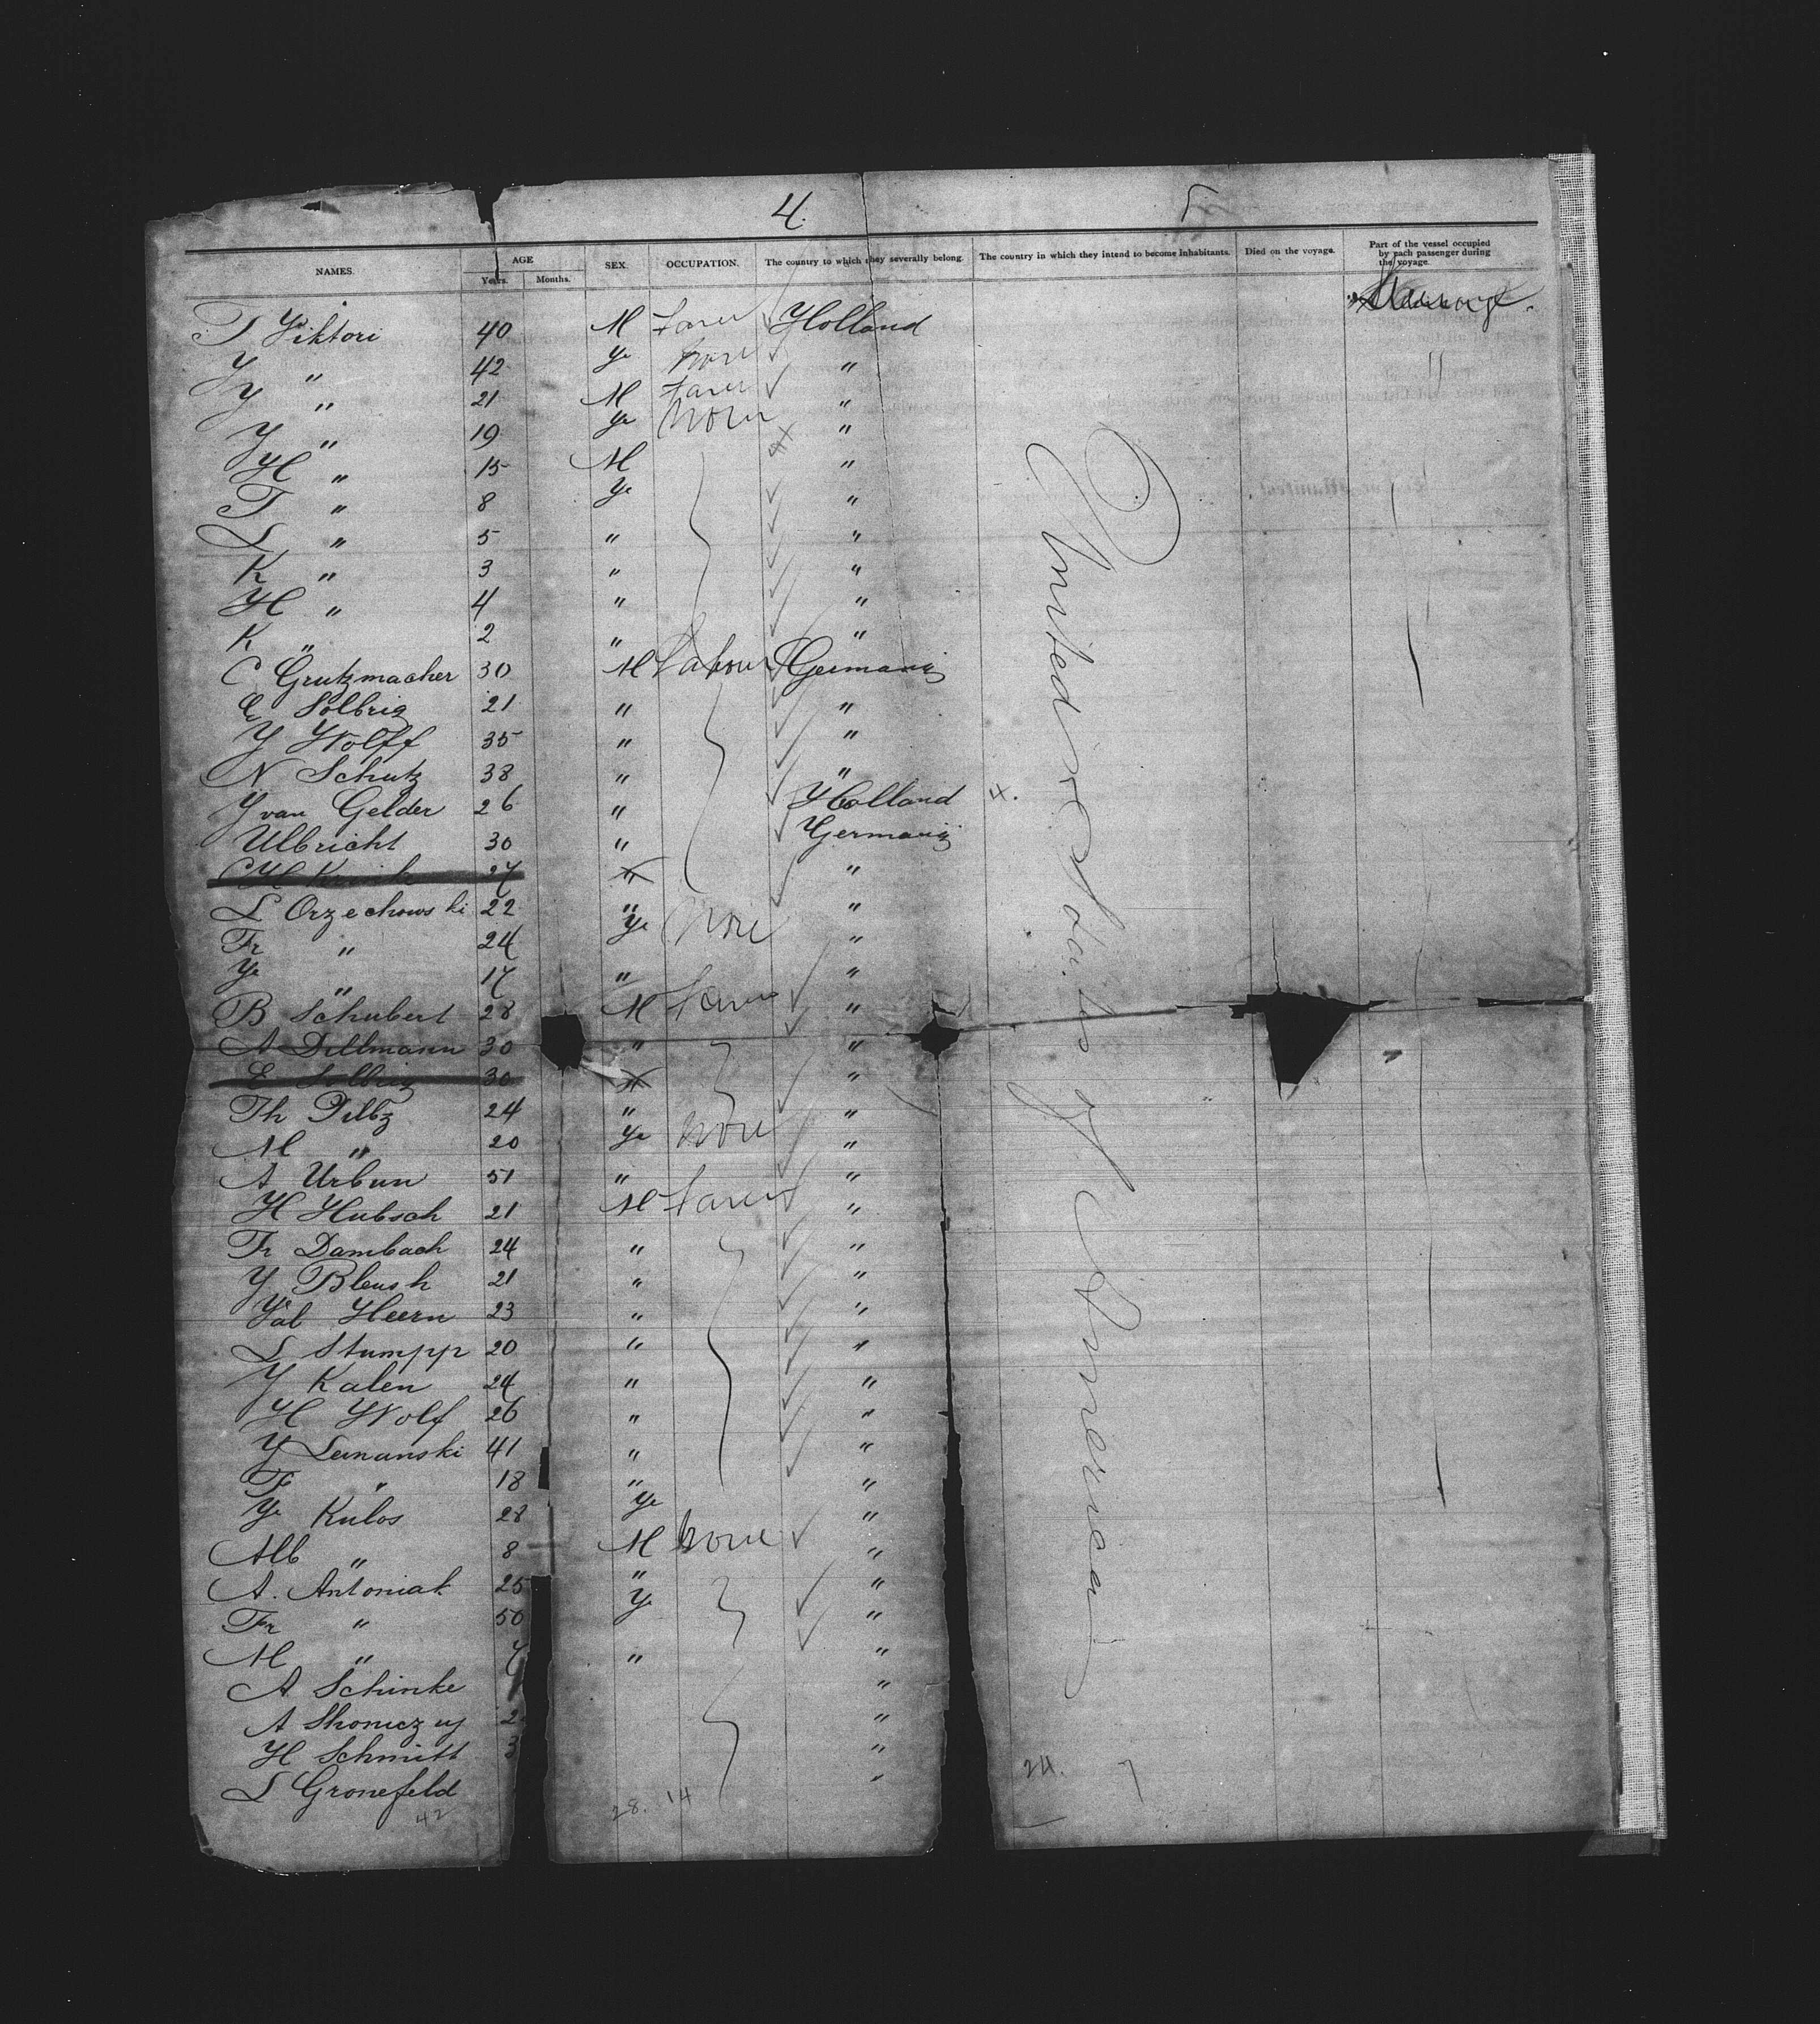 4. 5
NAMES. AGE Years. Months. SEX. OCCUPATION. The country to which they severally belong. The country in which they intend to become inhabitants. Died on the voyage. Part of the vessel occupied by each passenger during the voyage.
T Viktori 40 M Farer Holland Steerage.
Y " 42 Fe none " "
Y " 21 M Farer "
Y " 19 Fe none "
H " 15 M "
T " 8 Fe "
L " 5 " "
K " 3 " "
H " 4 " "
K " 2 " "
C Grutzmacher 30 M Labour Germany
E Solbrig 21 " "
Y Wolff 35 " "
N Schutz 38 " "
Y van Gelder 26 " Holland x.
Ulbricht 30 " Germany
C H 27 " "
L Orzechowski 22 " "
Fr " 24 Fe none "
Fe " 17 " "
B Schubert 28 M Farer "
A Dillmann 30 " "
E Solbrig 30 " "
Th Piltz 24 " "
M " 20 Fe none "
A Urbun 51 " "
H Hubsch 21 M Farer "
Fr Dambach 24 " "
Y Bleush 21 " "
Heern 23 " "
L Stumpp 20 " "
Y Kalen 24 " "
H Wolf 26 " "
Y Lemanski 41 " "
F " 18 " "
Fe Kulos 28 Fe "
Alb " 8 M none "
A. Antoniak 25 " "
Fr " 50 Fe "
M " 7 " "
A Schinke "
A 2 "
H Schmitt 3 "
L Gronefeld "
United States of America
42 28. 14 24. 7